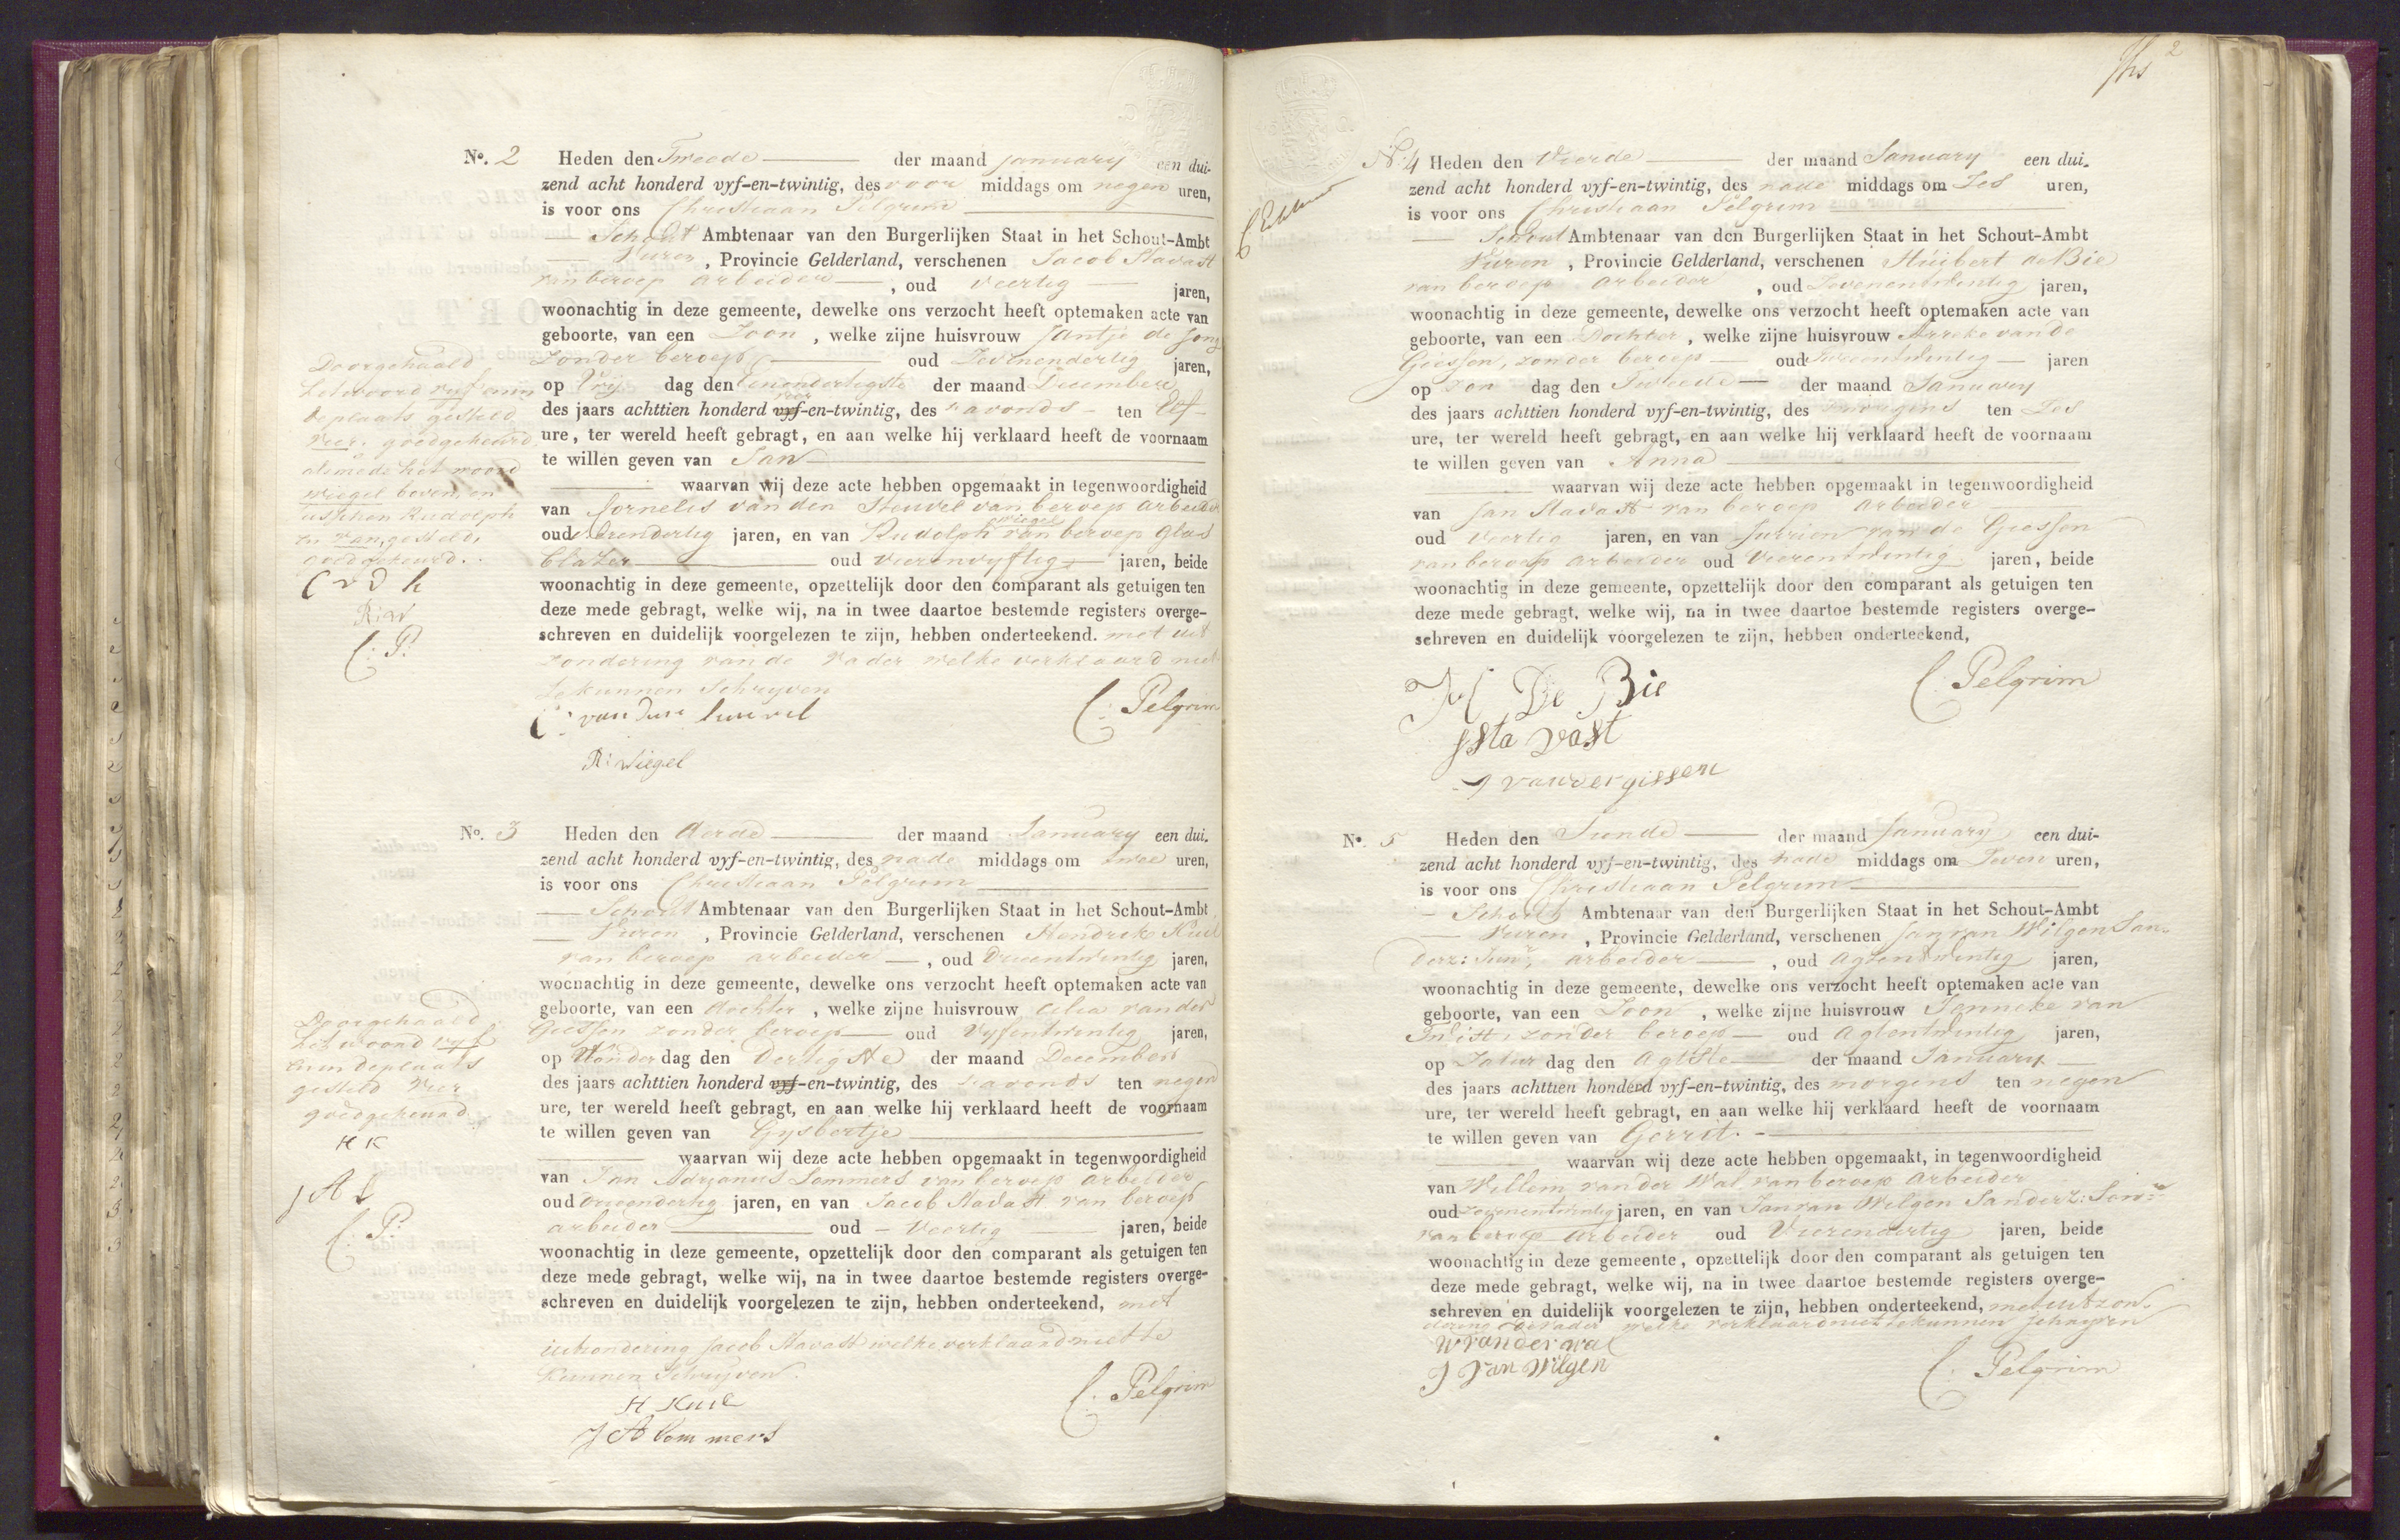 No. 2 Heden den Tweede der maand January een dui-
zend acht honderd vyf-en-twintig, des voor middags om negen uren,
is voor ons Christiaan Pelgrim
Schout Ambtenaar van den Burgerlijken Staat in het Schout-Ambt
Vuren, Provincie Gelderland, verschenen Jacob Stavast
van beroep arbeider, oud veertig jaren,
woonachtig in deze gemeente, dewelke ons verzocht heeft optemaken acte van
geboorte, van een Zoon, welke zijne huisvrouw Jantje de Jong
zonder beroep, oud Zevenendertig jaren,
op Vrij dag den Eenendertigste der maand December
vier
des jaars achttien honderd vyf-en-twintig, des savonds ten Elf
ure, ter wereld heeft gebragt, en aan welke hij verklaard heeft de voornaam
te willen geven van Jan
waarvan wij deze acte hebben opgemaakt in tegenwoordigheid
van Cornelis van den Heuvel van beroep arbeider
wiegel
oud drendertig jaren, en van Rudolph van beroep glas
blazer oud vierenvyftig jaren, beide
woonachtig in deze gemeente, opzettelijk door den comparant als getuigen ten
deze mede gebragt, welke wij, na in twee daartoe bestemde registers overge-
schreven en duidelijk voorgelezen te zijn, hebben onderteekend. met uit
zondering van de vader welke verklaard niet
te kunnen schryven
C: van den heuvel C: Pelgrim
R: wiegel
Doorgehaald
het woord vyf en in
de plaats gesteld
vier. goedgekeurd
alsmede het woord
wiegel boven en
tusschen Rudolph
en van, gesteld,
goedgekeurd.
C v d h
R: w
C: P:
No. 3 Heden den derde der maand January een dui-
zend acht honderd vyf-en-twintig, des nade middags om twee uren,
is voor ons Christiaan Pelgrim
Schout Ambtenaar van den Burgerlijken Staat in het Schout-Ambt
Vuren, Provincie Gelderland, verschenen Hendrik Kuil
van beroep arbeider, oud Drieentwintig jaren,
woonachtig in deze gemeente, dewelke ons verzocht heeft optemaken acte van
geboorte, van een dochter, welke zijne huisvrouw Celia van der
Giessen zonder beroep oud Vyfentwintig jaren,
op Donder dag den Dertigste der maand December
des jaars achttien honderd vyf-en-twintig, des savonds ten negen
ure, ter wereld heeft gebragt, en aan welke hij verklaard heeft de voornaam
te willen geven van Gysbertje
waarvan wij deze acte hebben opgemaakt in tegenwoordigheid
van Jan Adryanus Lommers van beroep arbeider
oud drieendertig jaren, en van Jacob Stavast van beroep
arbeider oud veertig jaren, beide
woonachtig in deze gemeente, opzettelijk door den comparant als getuigen ten
deze mede gebragt, welke wij, na in twee daartoe bestemde registers overge-
schreven en duidelijk voorgelezen te zijn, hebben onderteekend, met
uitzondering Jacob Stavast welke verklaard niet te
kunnen Schryven.
H Kuil C: Pelgrim
J A Lommers
Doorgehaald
het woord vyf
en in de plaats
gesteld vier
goedgekeurd
H K
J A L
C: P:
2
No: 4 Heden den Vierde der maand January een dui-
zend acht honderd vyf-en-twintig, des nade middags om Zes uren,
is voor ons Christiaan Pelgrim
Schout Ambtenaar van den Burgerlijken Staat in het Schout-Ambt
Vuren, Provincie Gelderland, verschenen Huibert de Bie
van beroep arbeider, oud Zevenentwintig jaren,
woonachtig in deze gemeente, dewelke ons verzocht heeft optemaken acte van
geboorte, van een Dochter, welke zijne huisvrouw van de
Giessen, zonder beroep oud Tweeentwintig jaren
op Zon dag den Tweede der maand January
des jaars achttien honderd vyf-en-twintig, des morgens ten Zes
ure, ter wereld heeft gebragt, en aan welke hij verklaard heeft de voornaam
te willen geven van Anna
waarvan wij deze acte hebben opgemaakt in tegenwoordigheid
van Jan Stavast van beroep arbeider
oud veertig jaren, en van Jurrien van de Giessen
van beroep arbeider oud Vierentwintig jaren, beide
woonachtig in deze gemeente, opzettelijk door den comparant als getuigen ten
deze mede gebragt, welke wij, na in twee daartoe bestemde registers overge-
schreven en duidelijk voorgelezen te zijn, hebben onderteekend,
H De Bie C: Pelgrim
J Sta vast
J vander gissen
No. 5 Heden den Tiende der maand January een dui-
zend acht honderd vyf-en-twintig, des nade middags om Zeven uren,
is voor ons Christiaan Pelgrim
Schout Ambtenaar van den Burgerlijken Staat in het Schout-Ambt
Vuren, Provincie Gelderland, verschenen Jan van Wilgen San-
derz: Junr, arbeider, oud Agtentwintig jaren,
woonachtig in deze gemeente, dewelke ons verzocht heeft optemaken acte van
geboorte, van een Zoon, welke zijne huisvrouw Jenneke van
zonder beroep oud Agtentwintig jaren,
op Zatur dag den Agtste der maand January
des jaars achttien honderd vyf-en-twintig, des morgens ten negen
ure, ter wereld heeft gebragt, en aan welke hij verklaard heeft de voornaam
te willen geven van Gerrit.
waarvan wij deze acte hebben opgemaakt, in tegenwoordigheid
van Willem van der Wal van beroep Arbeider
oud zevenentwintig jaren, en van Jan van Wilgen Sanderz: Senr
van beroep arbeider oud Vierendertig jaren, beide
woonachtig in deze gemeente, opzettelijk door den comparant als getuigen ten
deze mede gebragt, welke wij, na in twee daartoe bestemde registers overge-
schreven en duidelijk voorgelezen te zijn, hebben onderteekend, met uitzon-
dering de vader welke verklaard niet te kunnen schryven
W vander wal
J van Wilgen C: Pelgrim